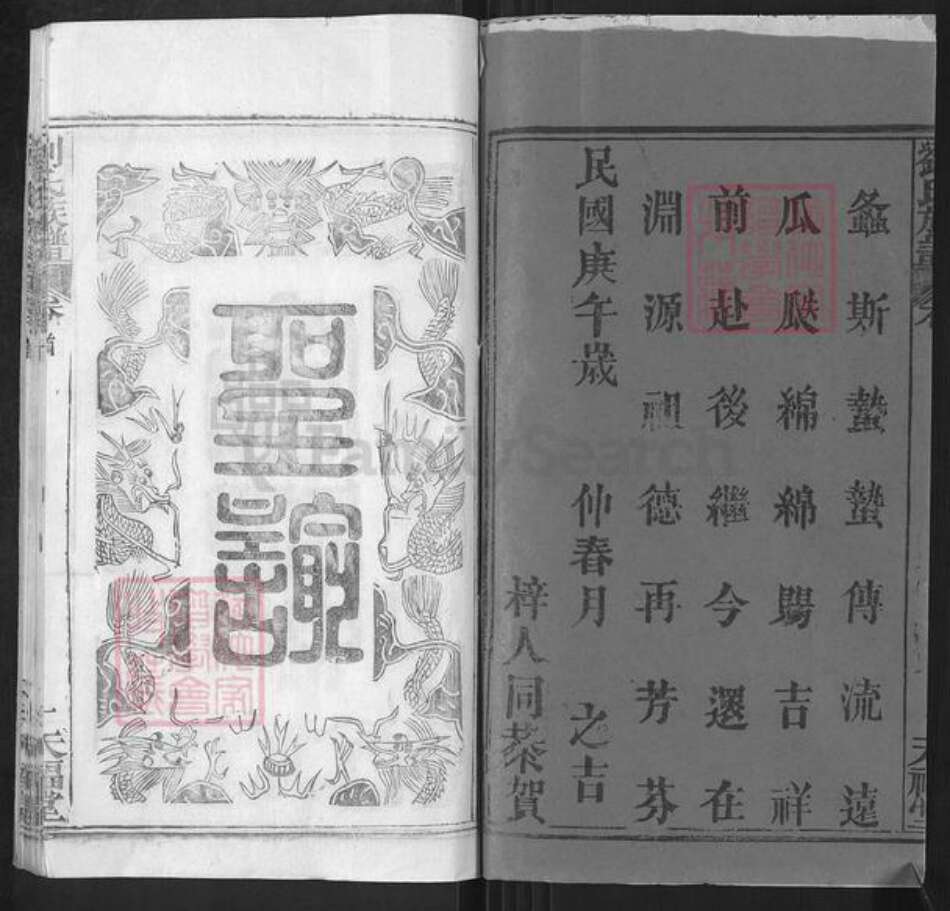 螽斯蟄蟄傳流遠
瓜瓞綿綿賜吉祥
前赴後繼今還在
淵源祖德再芳芬
民國庚午歲 仲春月 之吉
梓人同恭賀
聖諭
劉氏族譜
天福堂
FamilySearch